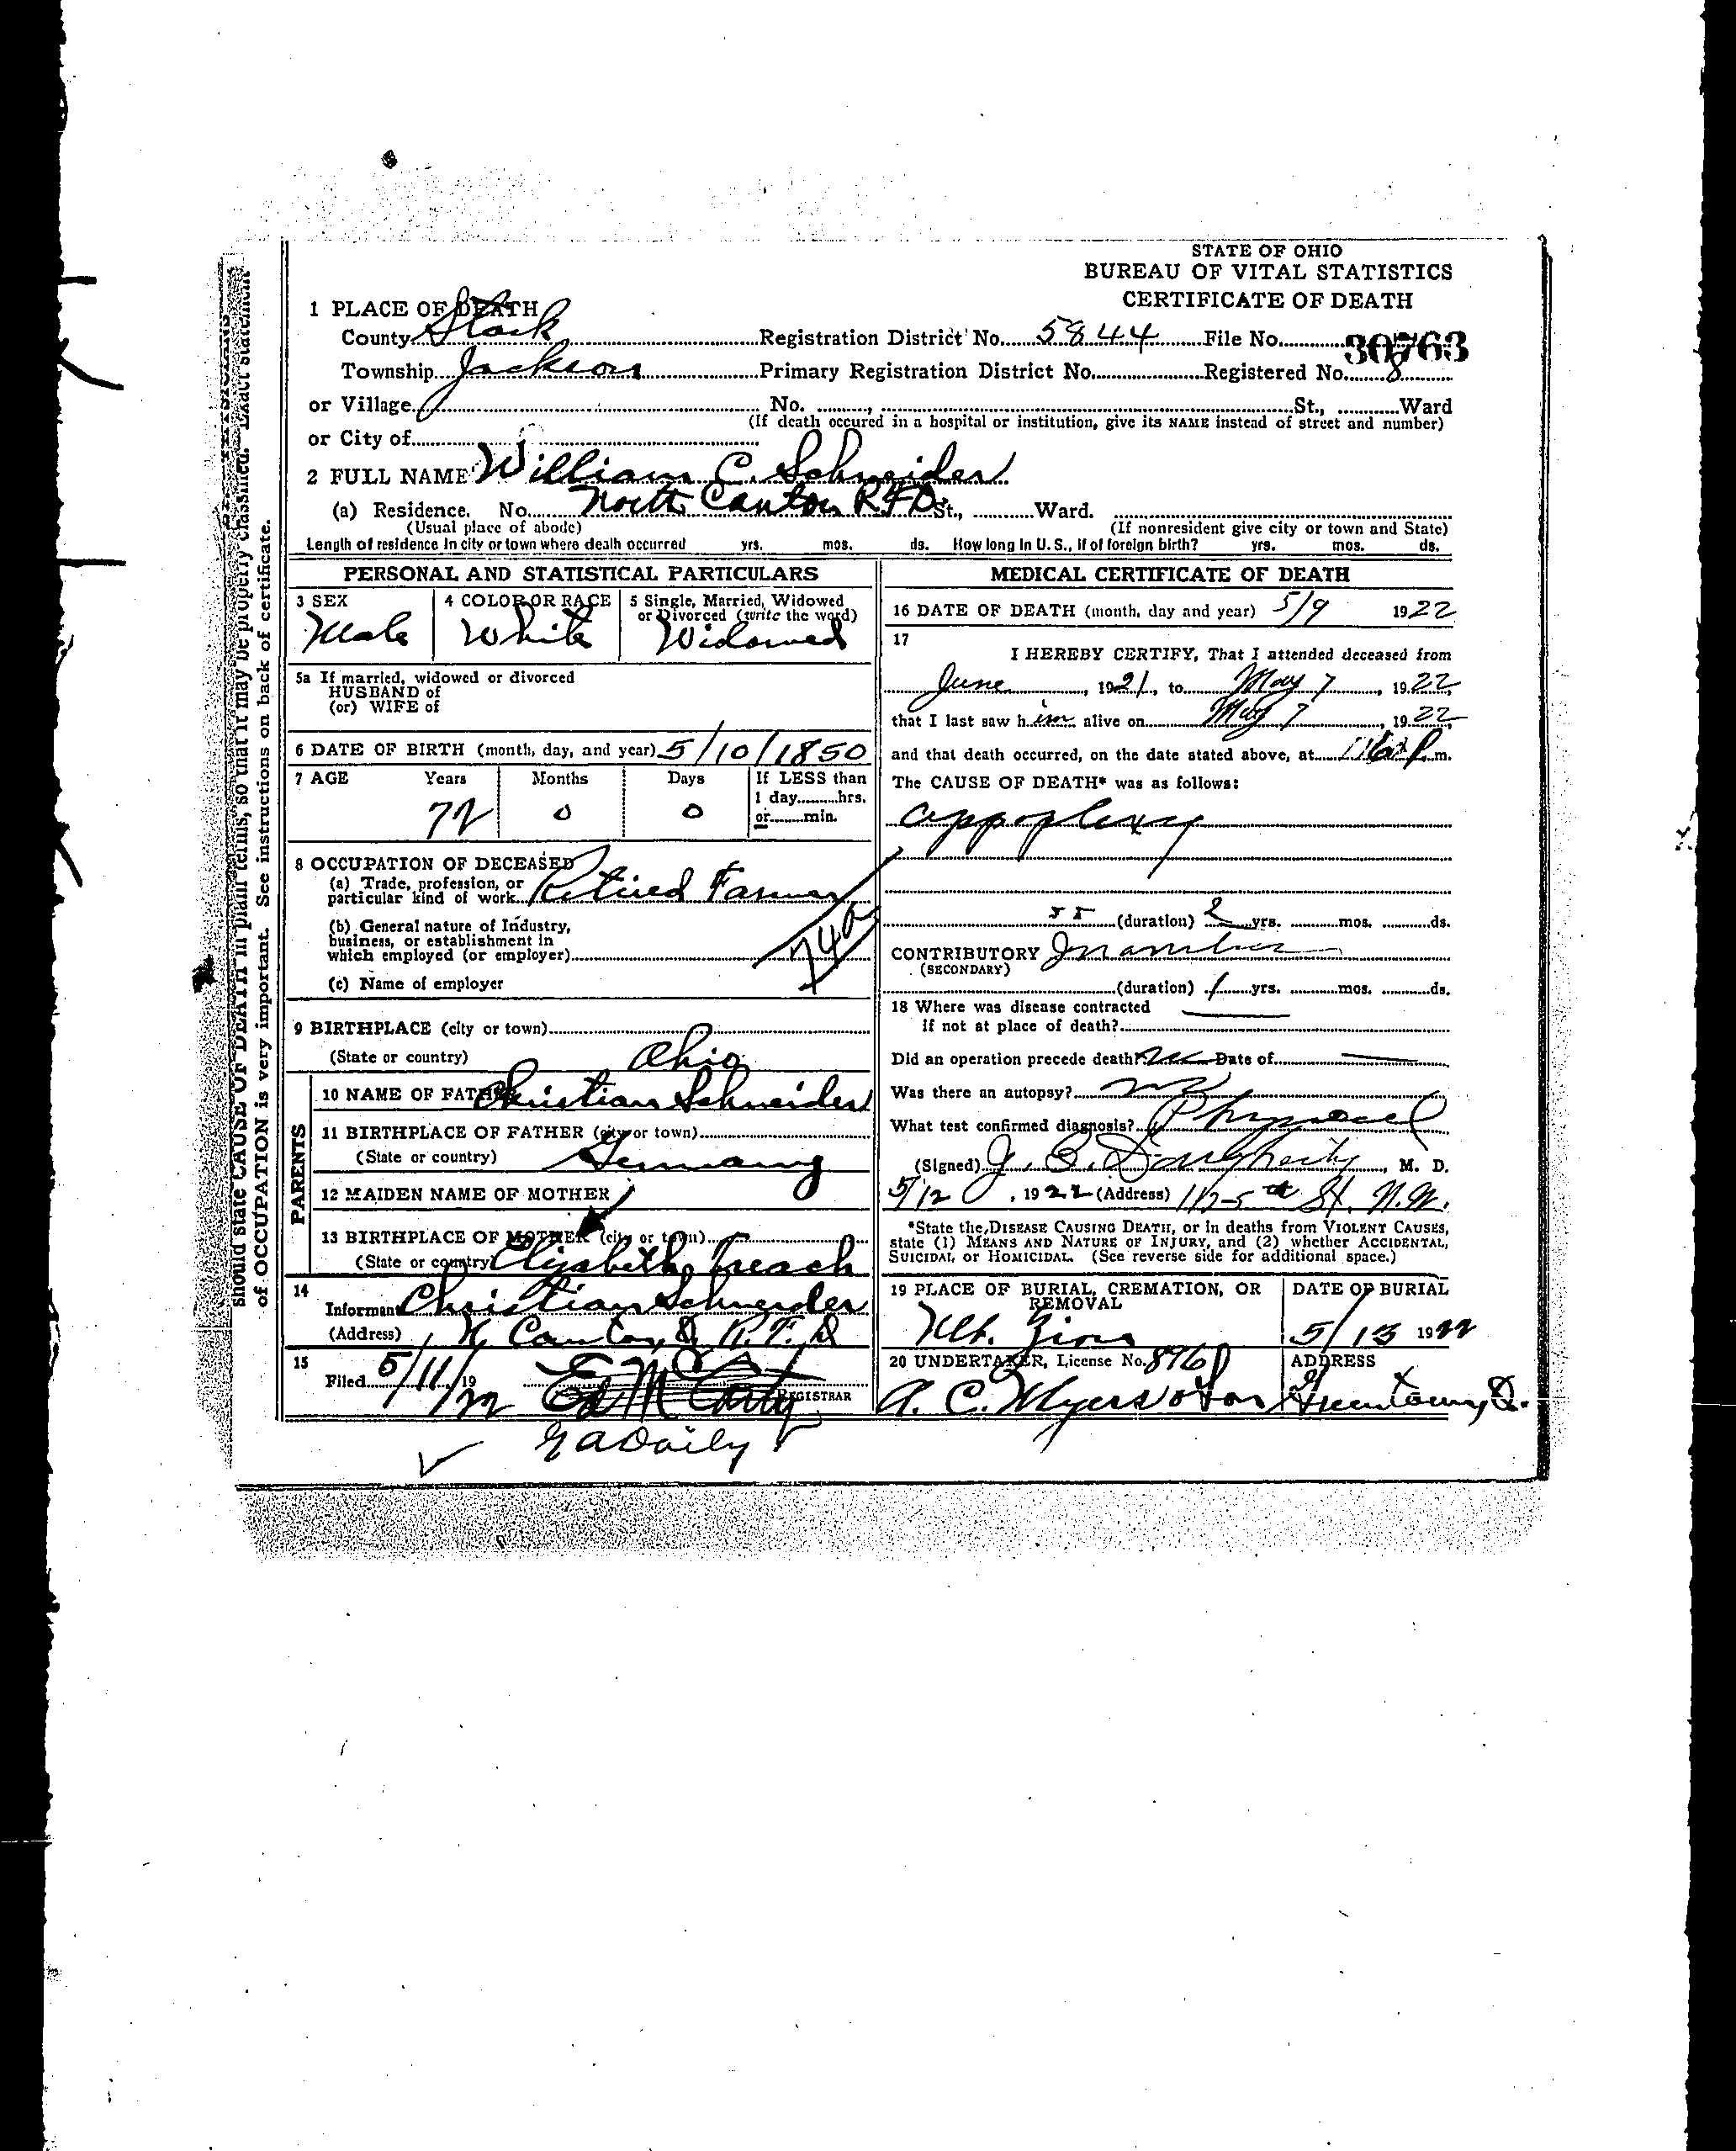 STATE OF OHIO
BUREAU OF VITAL STATISTICS
CERTIFICATE OF DEATH
1 PLACE OF DEATH
County Stark Registration District No. 5844 File No. 30763
Township Jackson Primary Registration District No. Registered No. 8
or Village No. St., Ward
(If death occured in a hospital or institution, give its NAME instead of street and number)
or City of
2 FULL NAME William C. Schneider
(a) Residence. No. North Canton R.F.D. St., Ward.
(Usual place of abode) (If nonresident give city or town and State)
Length of residence in city or town where death occurred yrs. mos. ds. How long in U. S., if of foreign birth? yrs. mos. ds.
PERSONAL AND STATISTICAL PARTICULARS
3 SEX
Male
4 COLOR OR RACE
White
5 Single, Married, Widowed
or Divorced (write the word)
Widowed
5a If married, widowed or divorced
HUSBAND of
(or) WIFE of
6 DATE OF BIRTH (month, day, and year) 5/10/1850
7 AGE Years Months Days If LESS than
1 day hrs.
or min.
72 0 0
8 OCCUPATION OF DECEASED
(a) Trade, profession, or
particular kind of work Retired Farmer
(b) General nature of Industry,
business, or establishment in
which employed (or employer)
(c) Name of employer
9 BIRTHPLACE (city or town)
(State or country) Ohio
PARENTS
10 NAME OF FATHER Christian Schneider
11 BIRTHPLACE OF FATHER (city or town)
(State or country) Germany
12 MAIDEN NAME OF MOTHER
13 BIRTHPLACE OF MOTHER (city or town)
(State or country) Elizabeth Freach
14
Informant Christian Schneider
(Address) N. Canton, O. R.F.D
15
Filed 5/11/19 22 Ed McCarty REGISTRAR
MEDICAL CERTIFICATE OF DEATH
16 DATE OF DEATH (month, day and year) 5/9 1922
17
I HEREBY CERTIFY, That I attended deceased from
June, 1921, to May 7, 1922,
that I last saw him alive on May 7, 1922
and that death occurred, on the date stated above, at P. m.
The CAUSE OF DEATH* was as follows:
appoplexy
(duration) 2 yrs. mos. ds.
CONTRIBUTORY
(SECONDARY)
(duration) 1 yrs. mos. ds.
18 Where was disease contracted
if not at place of death?
Did an operation precede death? no Date of
Was there an autopsy? no
What test confirmed diagnosis? Physical
(Signed) J. B. Daugherty, M. D.
5/12, 1922 (Address) 112-5th St. N.W.
*State the DISEASE CAUSING DEATH, or in deaths from VIOLENT CAUSES,
state (1) MEANS AND NATURE OF INJURY, and (2) whether ACCIDENTAL,
SUICIDAL or HOMICIDAL. (See reverse side for additional space.)
19 PLACE OF BURIAL, CREMATION, OR
REMOVAL
Mt. Zion
DATE OF BURIAL
5/13 1922
20 UNDERTAKER, License No. 896
A. C. Myers & Son
ADDRESS
Greentown, O.
should state CAUSE OF DEATH in plain terms, so that it may be properly classified. Exact statement
of OCCUPATION is very important. See instructions on back of certificate.